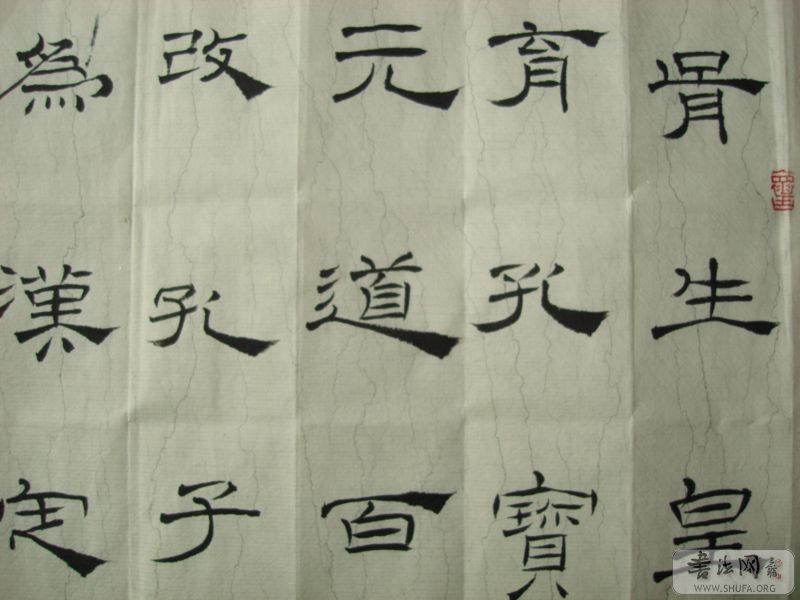 胥生皇
育孔寶
元道百
改孔子
爲漢定
書法网
WWW.SHUFA.ORG